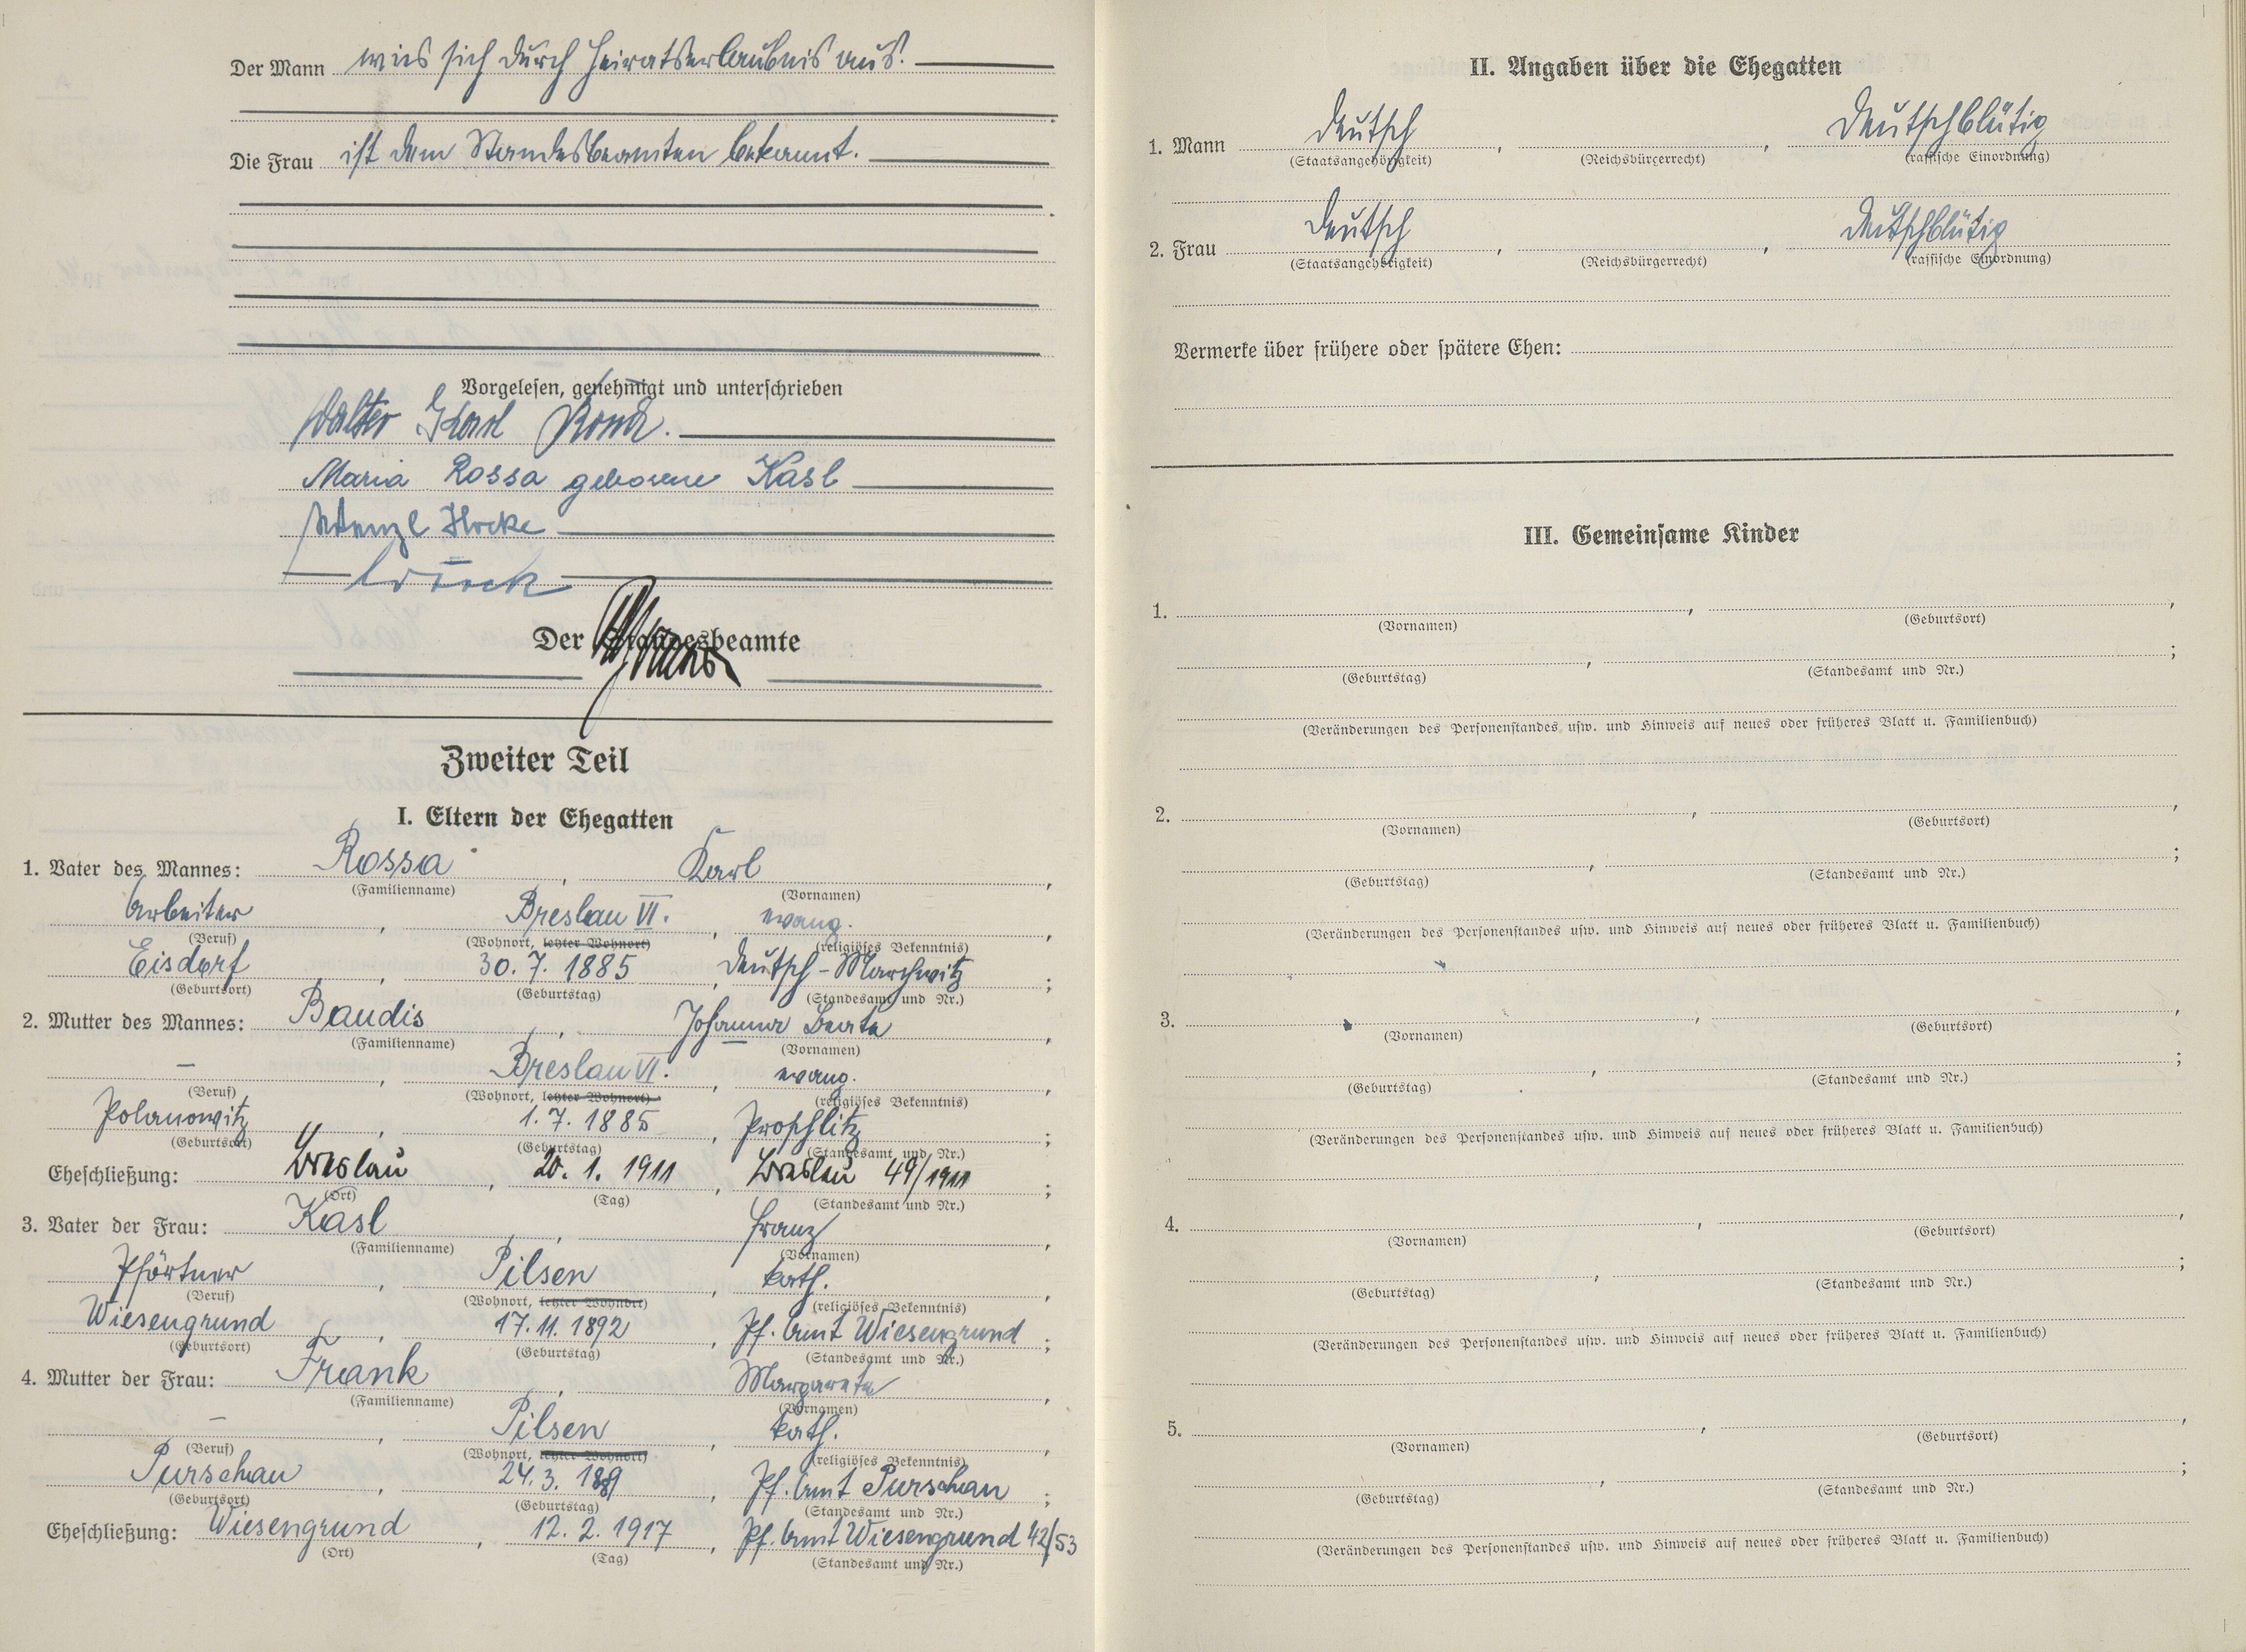 Der Mann wies sich durch Heiratserlaubnis aus.
Die Frau ist dem Standesbeamten bekannt.
Vorgelesen, genehmigt und unterschrieben
Walter Karl
Maria Rossa geborene Kasl
Wenzl
Der Standesbeamte
Zweiter Teil
I. Eltern der Ehegatten
1. Vater des Mannes: Rossa, Karl,
(Familienname) (Vornamen)
Arbeiter, Breslau VI., evang.,
(Beruf) (Wohnort, letzter Wohnort) (religiöses Bekenntnis)
Eisdorf, 30. 7. 1885, Deutsch-Marchwitz;
(Geburtsort) (Geburtstag) (Standesamt und Nr.)
2. Mutter des Mannes: Baudis, Johanna Beate,
(Familienname) (Vornamen)
–, Breslau VI., evang.,
(Beruf) (Wohnort, letzter Wohnort) (religiöses Bekenntnis)
Polanowitz, 1. 7. 1885, Proschlitz;
(Geburtsort) (Geburtstag) (Standesamt und Nr.)
Eheschließung: Breslau, 20. 1. 1911, Breslau 49/1911;
(Ort) (Tag) (Standesamt und Nr.)
3. Vater der Frau: Kasl, Franz,
(Familienname) (Vornamen)
Pförtner, Pilsen, kath.,
(Beruf) (Wohnort, letzter Wohnort) (religiöses Bekenntnis)
Wiesengrund, 17. 11. 1892, Pf. Amt Wiesengrund;
(Geburtsort) (Geburtstag) (Standesamt und Nr.)
4. Mutter der Frau: Frank, Margarete,
(Familienname) (Vornamen)
–, Pilsen, kath.,
(Beruf) (Wohnort, letzter Wohnort) (religiöses Bekenntnis)
Purschau, 24. 3. 1889, Pf. Amt Purschau;
(Geburtsort) (Geburtstag) (Standesamt und Nr.)
Eheschließung: Wiesengrund, 12. 2. 1917, Pf. Amt Wiesengrund 42/53
(Ort) (Tag) (Standesamt und Nr.)
II. Angaben über die Ehegatten
1. Mann Deutsch, , Deutschblütig
(Staatsangehörigkeit) (Reichsbürgerrecht) (rassische Einordnung)
2. Frau Deutsch, , Deutschblütig
(Staatsangehörigkeit) (Reichsbürgerrecht) (rassische Einordnung)
Vermerke über frühere oder spätere Ehen:
III. Gemeinsame Kinder
1. , ,
(Vornamen) (Geburtsort)
, ;
(Geburtstag) (Standesamt und Nr.)
(Veränderungen des Personenstandes usw. und Hinweis auf neues oder früheres Blatt u. Familienbuch)
2. , ,
(Vornamen) (Geburtsort)
, ;
(Geburtstag) (Standesamt und Nr.)
(Veränderungen des Personenstandes usw. und Hinweis auf neues oder früheres Blatt u. Familienbuch)
3. , ,
(Vornamen) (Geburtsort)
, ;
(Geburtstag) (Standesamt und Nr.)
(Veränderungen des Personenstandes usw. und Hinweis auf neues oder früheres Blatt u. Familienbuch)
4. , ,
(Vornamen) (Geburtsort)
, ;
(Geburtstag) (Standesamt und Nr.)
(Veränderungen des Personenstandes usw. und Hinweis auf neues oder früheres Blatt u. Familienbuch)
5. , ,
(Vornamen) (Geburtsort)
, ;
(Geburtstag) (Standesamt und Nr.)
(Veränderungen des Personenstandes usw. und Hinweis auf neues oder früheres Blatt u. Familienbuch)